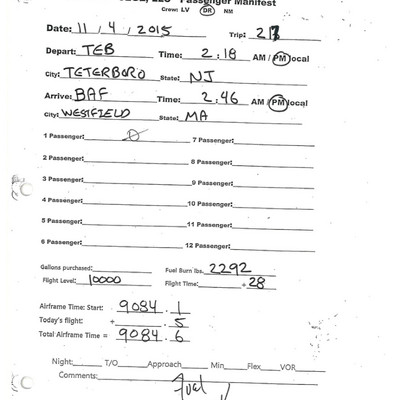 LLC Passenger Manifest
Crew: LV DR NM
Date: 11 / 4 / 2015 Trip:
Depart: TEB Time: 2:18 AM / PM local
City: TETERBORO State: NJ
Arrive: BAF Time: 2:46 AM / PM local
City: WESTFIELD State: MA
1 Passenger: 0 7 Passenger:
2 Passenger: 8 Passenger:
3 Passenger: 9 Passenger:
4 Passenger: 10 Passenger:
5 Passenger: 11 Passenger:
6 Passenger: 12 Passenger:
Gallons purchased: Fuel Burn lbs. 2292
Flight Level: 10000 Flight Time: + 28
Airframe Time: Start: 9084.1
Today's flight: + .5
Total Airframe Time = 9084.6
Night: T/O Approach Min Flex VOR
Comments: Fuel